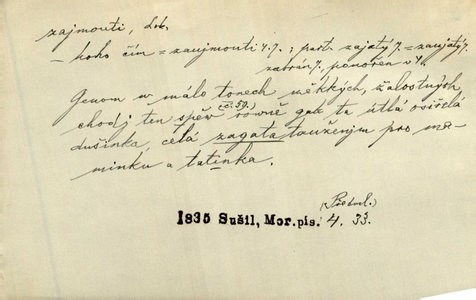 zajmouti, dok.
– koho čím = zaujmouti 4.7. ; part. zajatý 7. = zaujatý 7.
zabrán 7., ponořen v 4.
Genom w málo tonech měkkých, žalostných
chodj ten spěw (č. 59.) rowně gak ta útlá osiřelá
dušinka, celá zagata tauženjm pro ma-
minku a tatinka.
(Předml.)
1835 Sušil, Mor. pis. 4. 33.